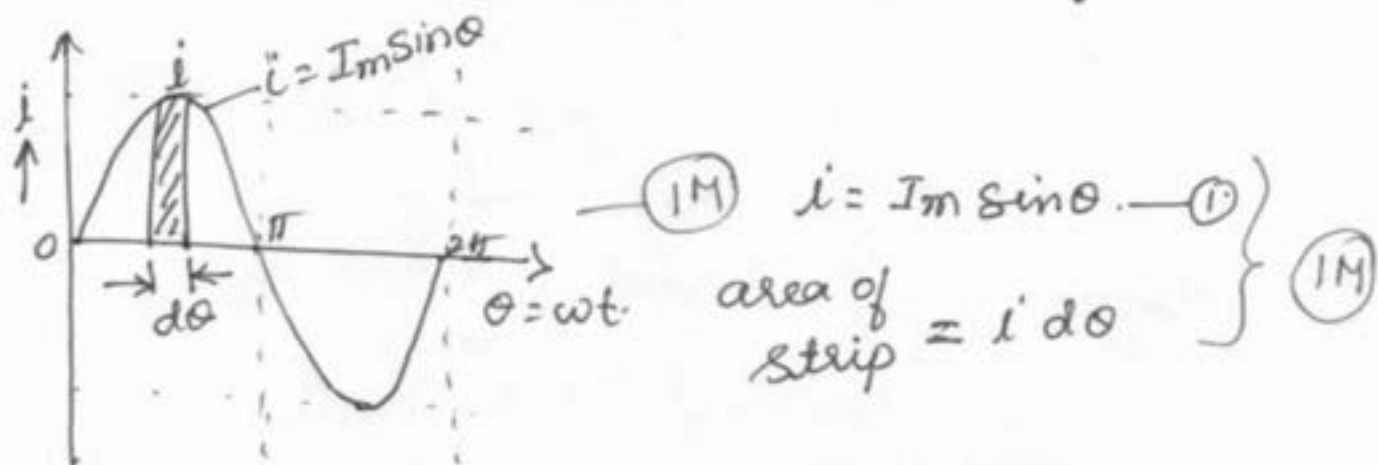 i = Im Sinθ
i
i
0
π
2π
θ = ωt.
dθ
1M
i = Im Sinθ. — ①
area of strip = i dθ
1M